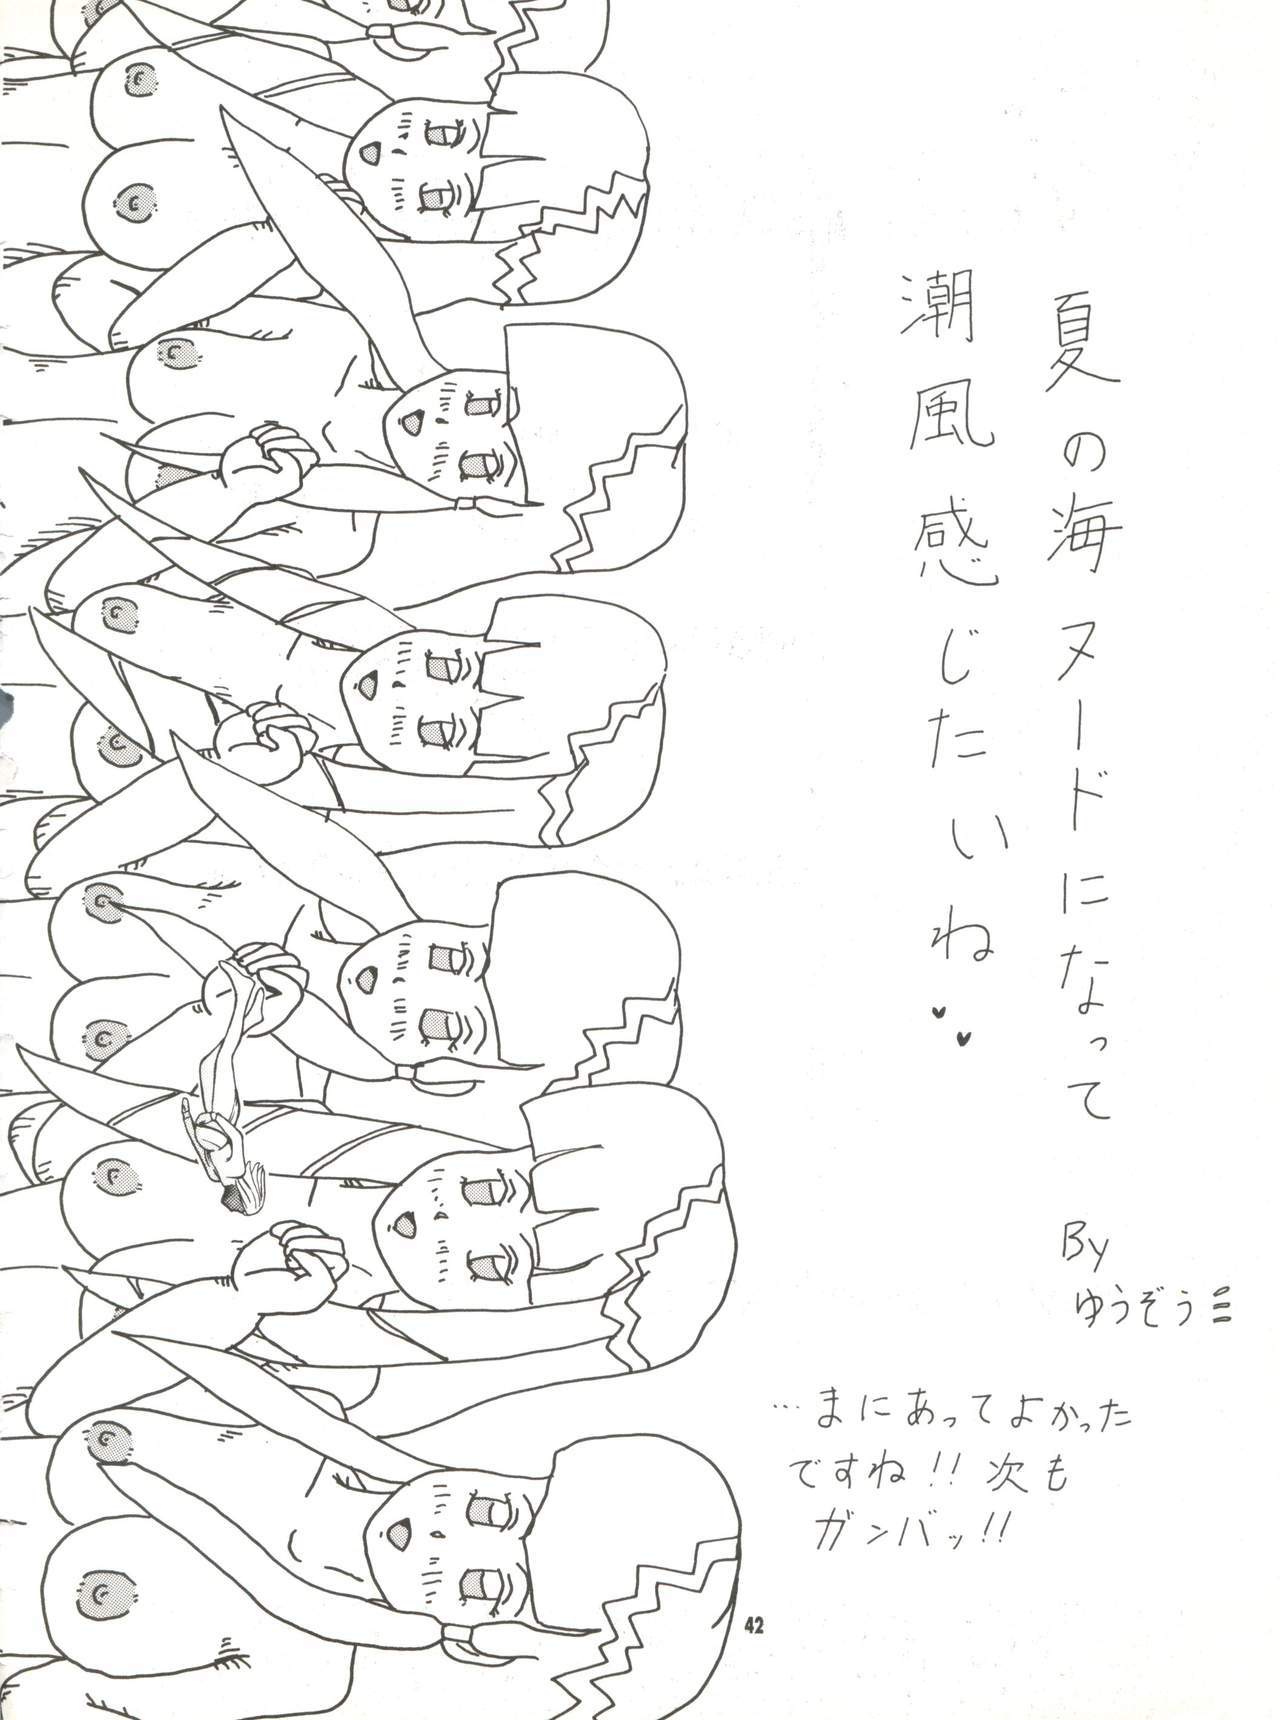 夏の海ヌードになって
潮風感じたいね
By
ゆうぞう
…まにあってよかった
ですね!!次も
ガンバッ!!
42